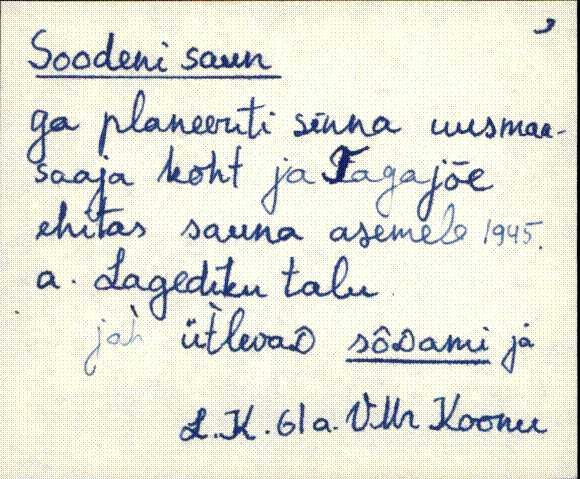 3
Soodeni saun
ga planeeriti sinna uusmaa-
saaja koht ja Tagajõe
ehitas sauna asemele 1945.
a. Lagediku talu.
jah ütlevad sõdami ja
L.K. 61 a. VMr Koonu